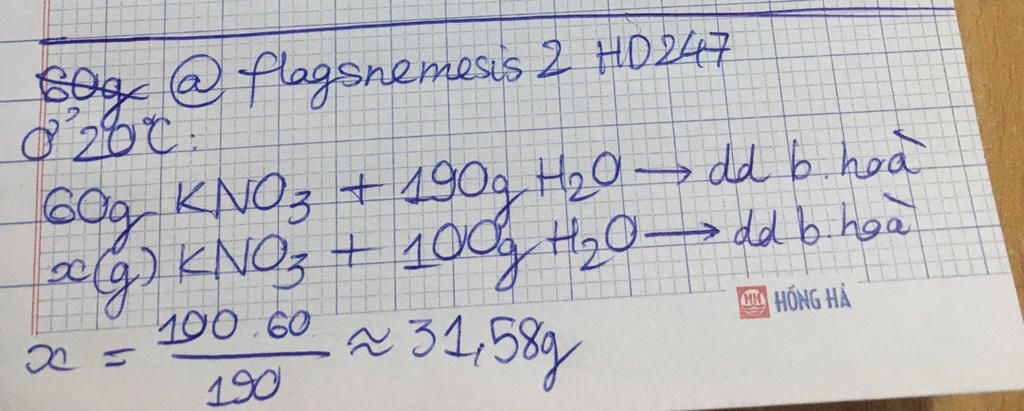 60g @ flagsnemesis2 HD247
Ở 20°C:
60g KNO3 + 190g H2O → dd b.hoà
x(g) KNO3 + 100g H2O → dd b.hoà
HH HỒNG HÀ
x = 100.60 / 190 ≈ 31,58g